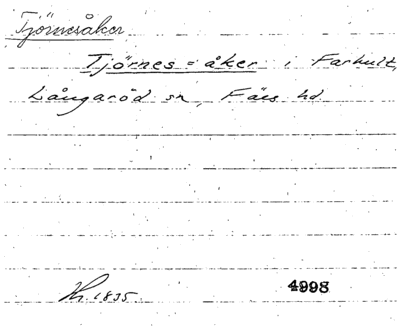 Tjörnesåker
Tjörnes=åker i Farhult,
Långaröd sn, Färs hd
Kr. 1835.
4998